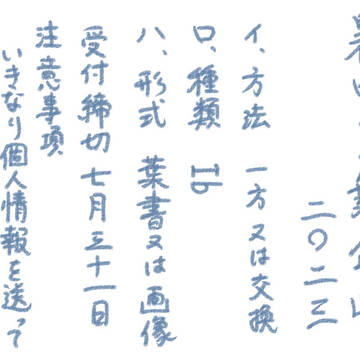 二〇二三
イ、方法　一方又は交換
ロ、種類　Ib
ハ、形式　葉書又は画像
受付締切　七月三十一日
注意事項
いきなり個人情報を送って